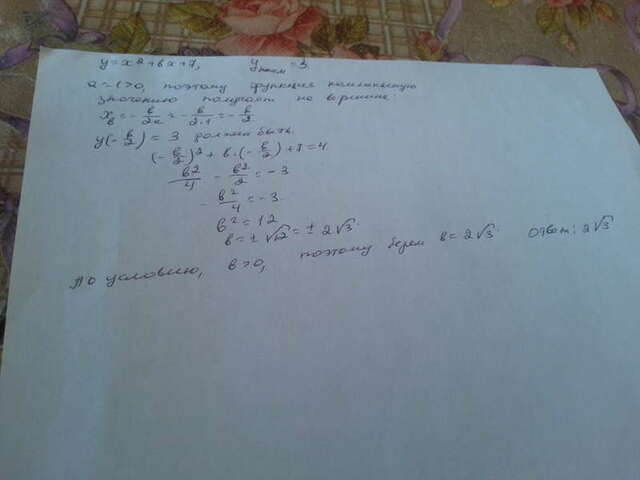 y = x² + вx + 7, y наим = 3
a = 1 > 0, поэтому функция наименьшую
значению получает на вершине:
x_в = -в/2a = -в/2·1 = -в/2
y(-в/2) = 3 должен быть.
(-в/2)² + в·(-в/2) + 7 = 4
в²/4 - в²/2 = -3
-в²/4 = -3
в² = 12
в = ±√12 = ±2√3
По условию, в > 0, поэтому берем в = 2√3 Ответ: 2√3